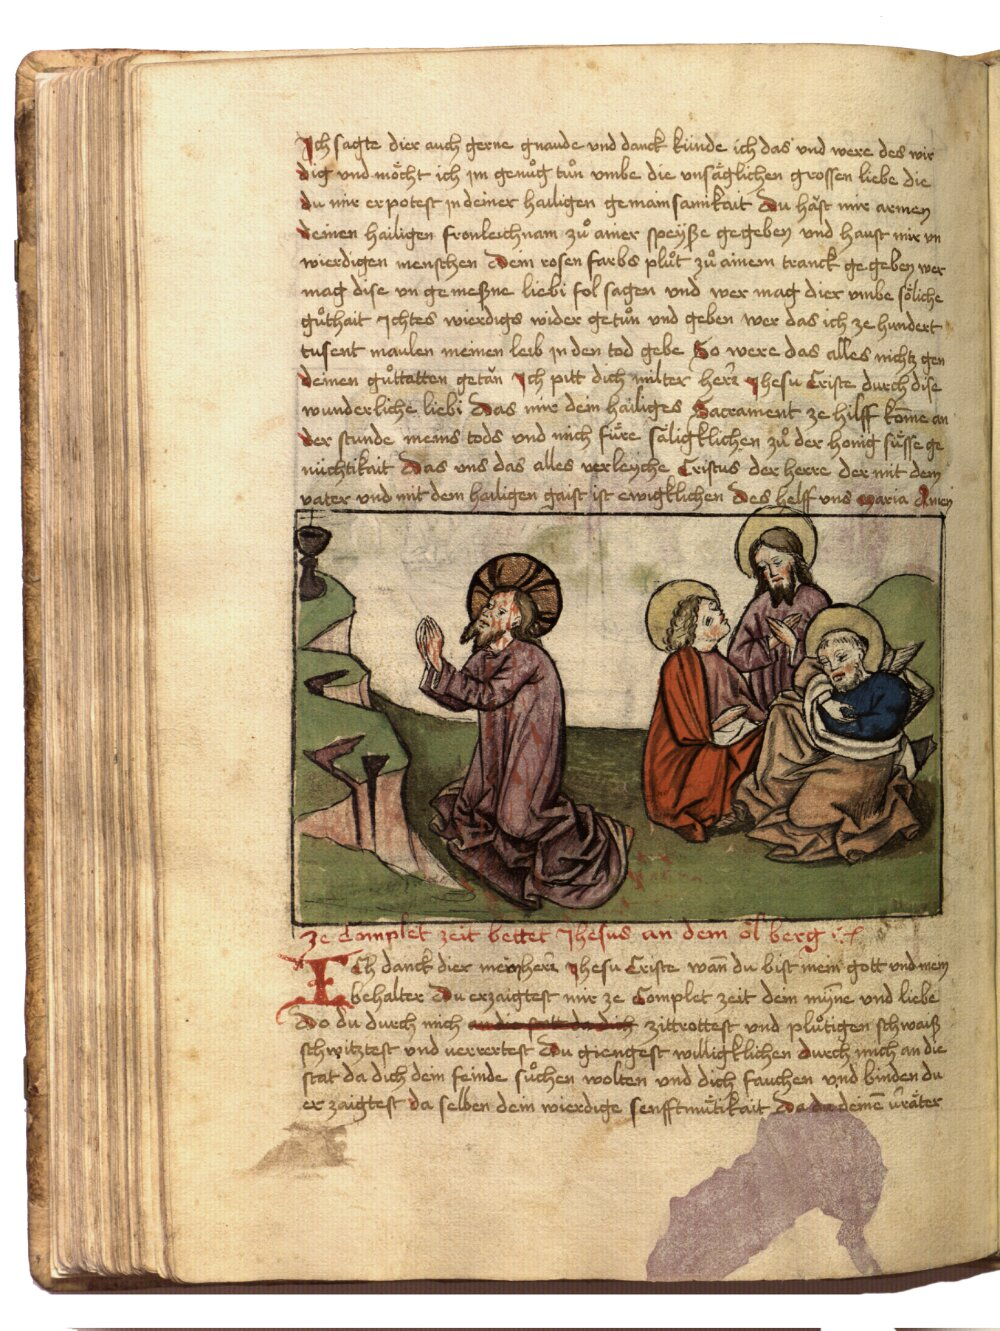 Ich sagte dier auch gerne gnaude und danck künde ich das und were des wir
dig und möcht ich im genůg tůn umbe die unsäglichen grossen liebe die
du mir erpotest in deiner hailigen gemainsamikait Du häst mir armen
deinen hailigen fronleichnam zů ainer speyße gegeben und haust mir un
wierdigen menschen dein rosen farbs plůt zů ainem tranck gegeben wer
mag dise un gemeßne liebi fol sagen und wer mag dier umbe söliche
gůthait Ichtes wierdigs wider getůn und geben wer das ich ze hundert
tusent maulen meinen leib in den tod gebe So were das alles nichtz gen
deinen gůttatten getän Ich pitt dich milter herr Jhesu Criste durch dise
wunderliche liebi Das mir dein hailiges Sacrament ze hilff kome an
der stunde meins tods und mich füre säligklichen zů der honig süsse ge
nüchtikait Das uns das alles verleyche Cristus der herre der mit dem
vater und mit dem hailigen gaist ist ewigklichen Des helff uns maria Amen
ze Complet zeit bettet Jhesus an dem ölberg
ICh danck dier mein herr Jhesu Criste wann du bist mein gott und mein
behalter Du erzaigtest mir ze Complet zeit dein myne und liebe
Do du durch mich zittrottest und plůtigen schwaiß
schwitztest und verrertest Du giengest willigklichen durch mich an die
stat da dich dein feinde sůchen wolten und dich fauchen und binden du
erzaigtest da selben dein wierdige senfftmütikait Da du deinen